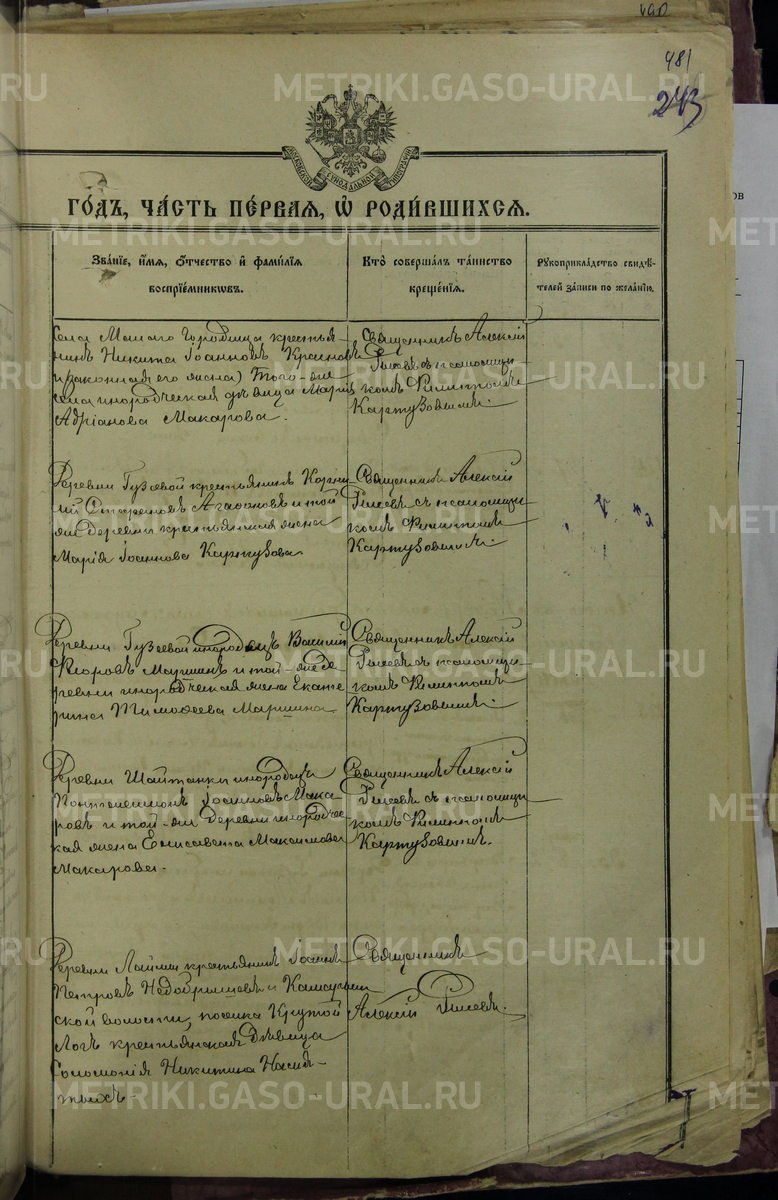 481
243
МОСКОВСКОЙ СѴНОДАЛЬНОЙ ТИПОГРАФІИ
ГО́ДЪ, ЧА́СТЬ ПЕ́РВАЯ, Ѽ РОДИ́ВШИХСЯ.
Зва́нїе, и́мя, ѻ́тчество и҆ фами́лїя
воспрїе́мникѡвъ.
Кто̀ соверша́лъ та́инство
креще́нїя.
Рꙋкоприкла́дство свидѣ́-
телей за́писи по жела́нїю.
Села Малаго Городища крестья-
нинъ Никита Іоанновъ
и (законная его жена) того-же
села инородческая дѣвица Марія
Адріанова Макарова.
Священникъ Алексій
съ псаломщи-
комъ Филиппомъ
Картузовымъ.
Деревни Гузѣевой крестьянинъ Корни-
лій Стефановъ Агафоновъ и той
же деревни крестьянская жена
Марія Іоаннова Картузова
Священникъ Алексій
съ псаломщи-
комъ Филиппомъ
Картузовымъ.
Деревни Гузѣевой инородецъ Василій
Егоровъ Маршинъ и той-же де-
ревни инородческая жена Екате
рина Тимоѳеева Маршина
Священникъ Алексій
съ псаломщи-
комъ Филиппомъ
Картузовымъ.
Деревни Шайтанки инородецъ
Понтелеимонъ Іоанновъ Мака-
ровъ и той-же деревни инородчес-
кая жена Елисавета Максимова
Макарова.
Священникъ Алексій
съ псаломщи-
комъ Филиппомъ
Картузовымъ.
Деревни крестьянинъ Іоаннъ
Петровъ и
ской волости, поселка Крутой
Логъ крестьянская дѣвица
Соломонія Никитина
Священникъ
Алексій
METRIKI.GASO-URAL.RU